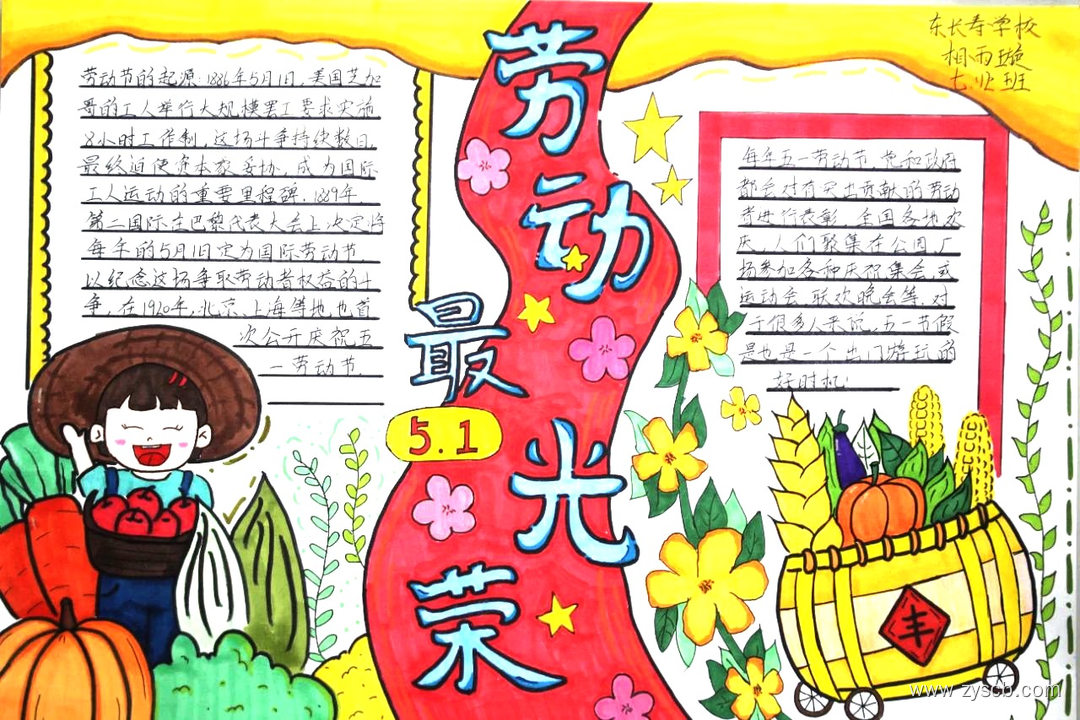 劳动最光荣
5.1
东长寿学校
相雨璇
七.5班
劳动节的起源:1886年5月1日,美国芝加
哥的工人举行大规模罢工要求实施
8小时工作制,这场斗争持续数日,
最终迫使资本家妥协,成为国际
工人运动的重要里程碑.1889年,
第二国际在巴黎代表大会上决定将
每年的5月1日定为国际劳动节,
以纪念这场争取劳动者权益的斗
争.在1920年,北京、上海等地也首
次公开庆祝五
一劳动节.
每年五一劳动节,党和政府
都会对有突出贡献的劳动
者进行表彰.全国各地欢
庆,人们聚集在公园,广
场参加各种庆祝集会或
运动会,联欢晚会等.对
于很多人来说,五一节假
是也是一个出门游玩的
好时机!
丰
www.zyscb.com